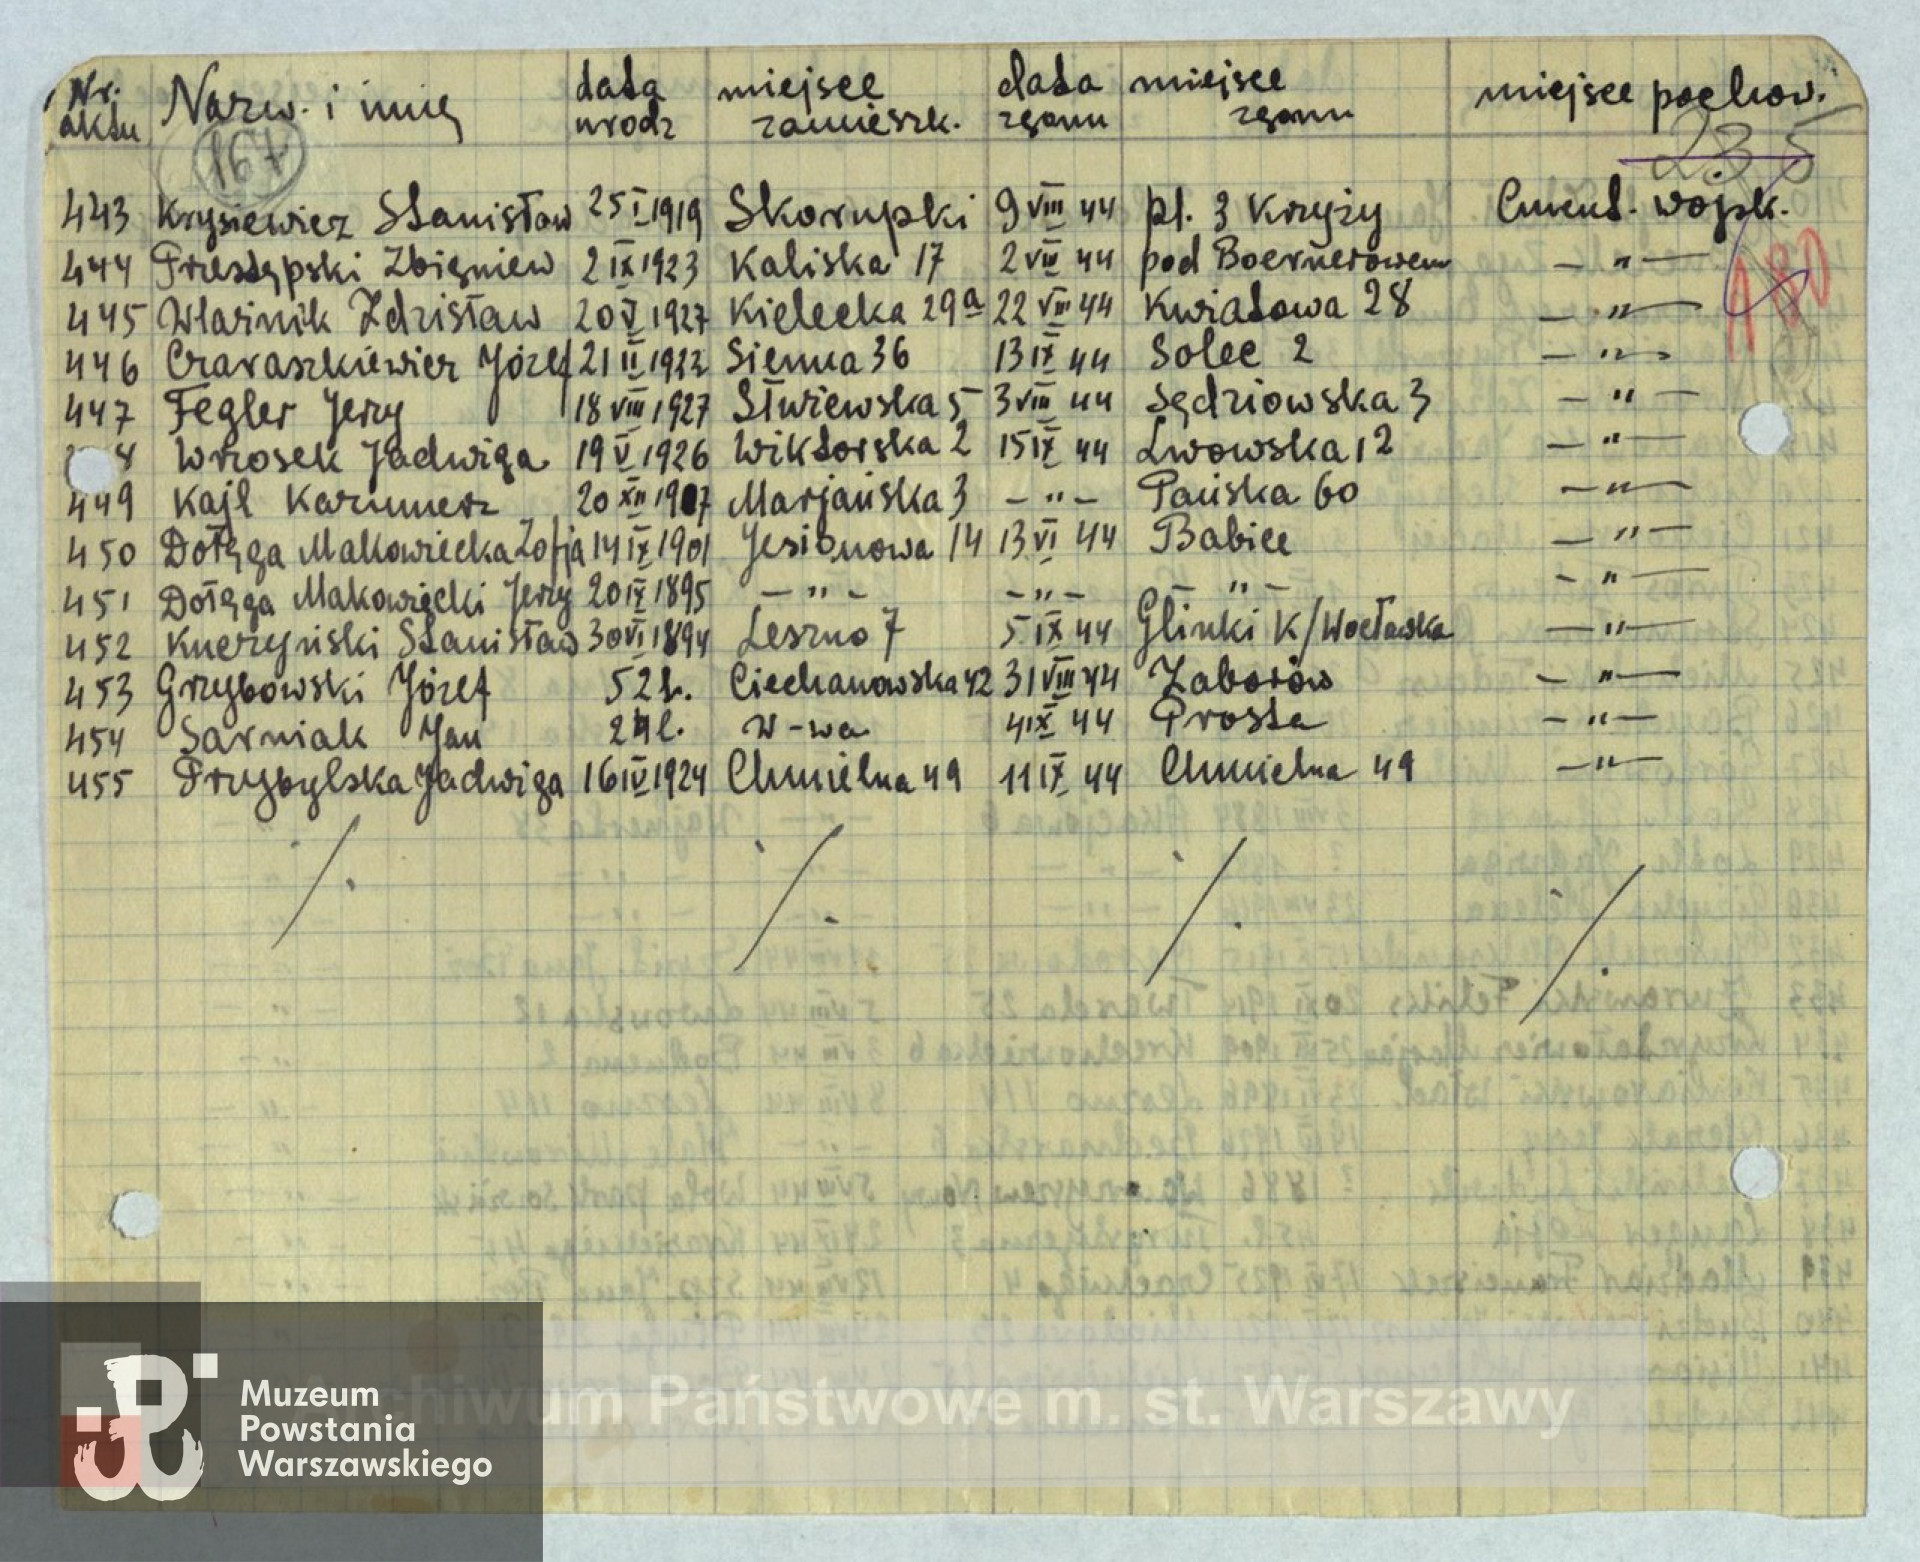 Nr. aktu Nazw. i imię data urodz miejsce zamieszk. data zgonu miejsce zgonu miejsce pochow.
167 235
443 Krysiewicz Stanisław 25 I 1919 Skorupki 9 VIII 44 pl. 3 Krzyży Cment. wojsk.
444 Przestępski Zbigniew 2 IX 1923 Kaliska 17 2 VIII 44 pod Boernerowem — " —
445 Właźnik Zdzisław 20 V 1927 Kielecka 29a 22 VIII 44 Kwiatowa 28 — " —
446 Czaraszkiewicz Józef 21 II 1922 Sienna 36 13 IX 44 Solec 2 — " —
447 Fegler Jerzy 18 VIII 1927 Służewska 5 3 VIII 44 Sędziowska 3 — " —
8 Wrzosek Jadwiga 19 V 1926 Wiktorska 2 15 IX 44 Lwowska 12 — " —
449 Kajl Kazimierz 20 XII 1907 Marjańska 3 — " — Pańska 60 — " —
450 Dołęga Makowiecka Zofja 14 IX 1901 Jesionowa 14 13 VI 44 Babice — " —
451 Dołęga Makowiecki Jerzy 20 IX 1895 — " — — " — — " — — " —
452 Knerzyński Stanisław 30 VI 1894 Leszno 7 5 IX 44 Glinki K/Wocławka — " —
453 Grzybowski Józef 52 l. Ciechanowska 42 31 VIII 44 Zaborów — " —
454 Sarniak Jan 24 l. W-wa 4 IX 44 Prosta — " —
455 Przybylska Jadwiga 16 IV 1924 Chmielna 49 11 IX 44 Chmielna 49 — " —
Archiwum Państwowe m. st. Warszawy
Muzeum
Powstania
Warszawskiego